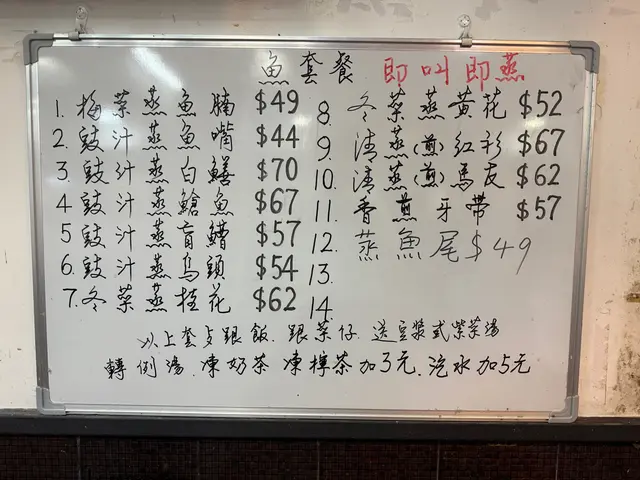 魚套餐 即叫即蒸
1. 梅菜蒸魚腩 $49
2. 豉汁蒸魚嘴 $44
3. 豉汁蒸白鱔 $70
4. 豉汁蒸鮯魚 $67
5. 豉汁蒸盲鰽 $57
6. 豉汁蒸烏頭 $54
7. 冬菜蒸桂花 $62
8. 冬菜蒸黄花 $52
9. 清蒸(煎)紅衫 $67
10. 清蒸(煎)馬友 $62
11. 香煎牙帶 $57
12. 蒸魚尾 $49
13.
14.
以上套歺跟飯.跟菜仔.送豆漿或紫菜湯
轉例湯.凍奶茶 凍檸茶加3元.汽水加5元